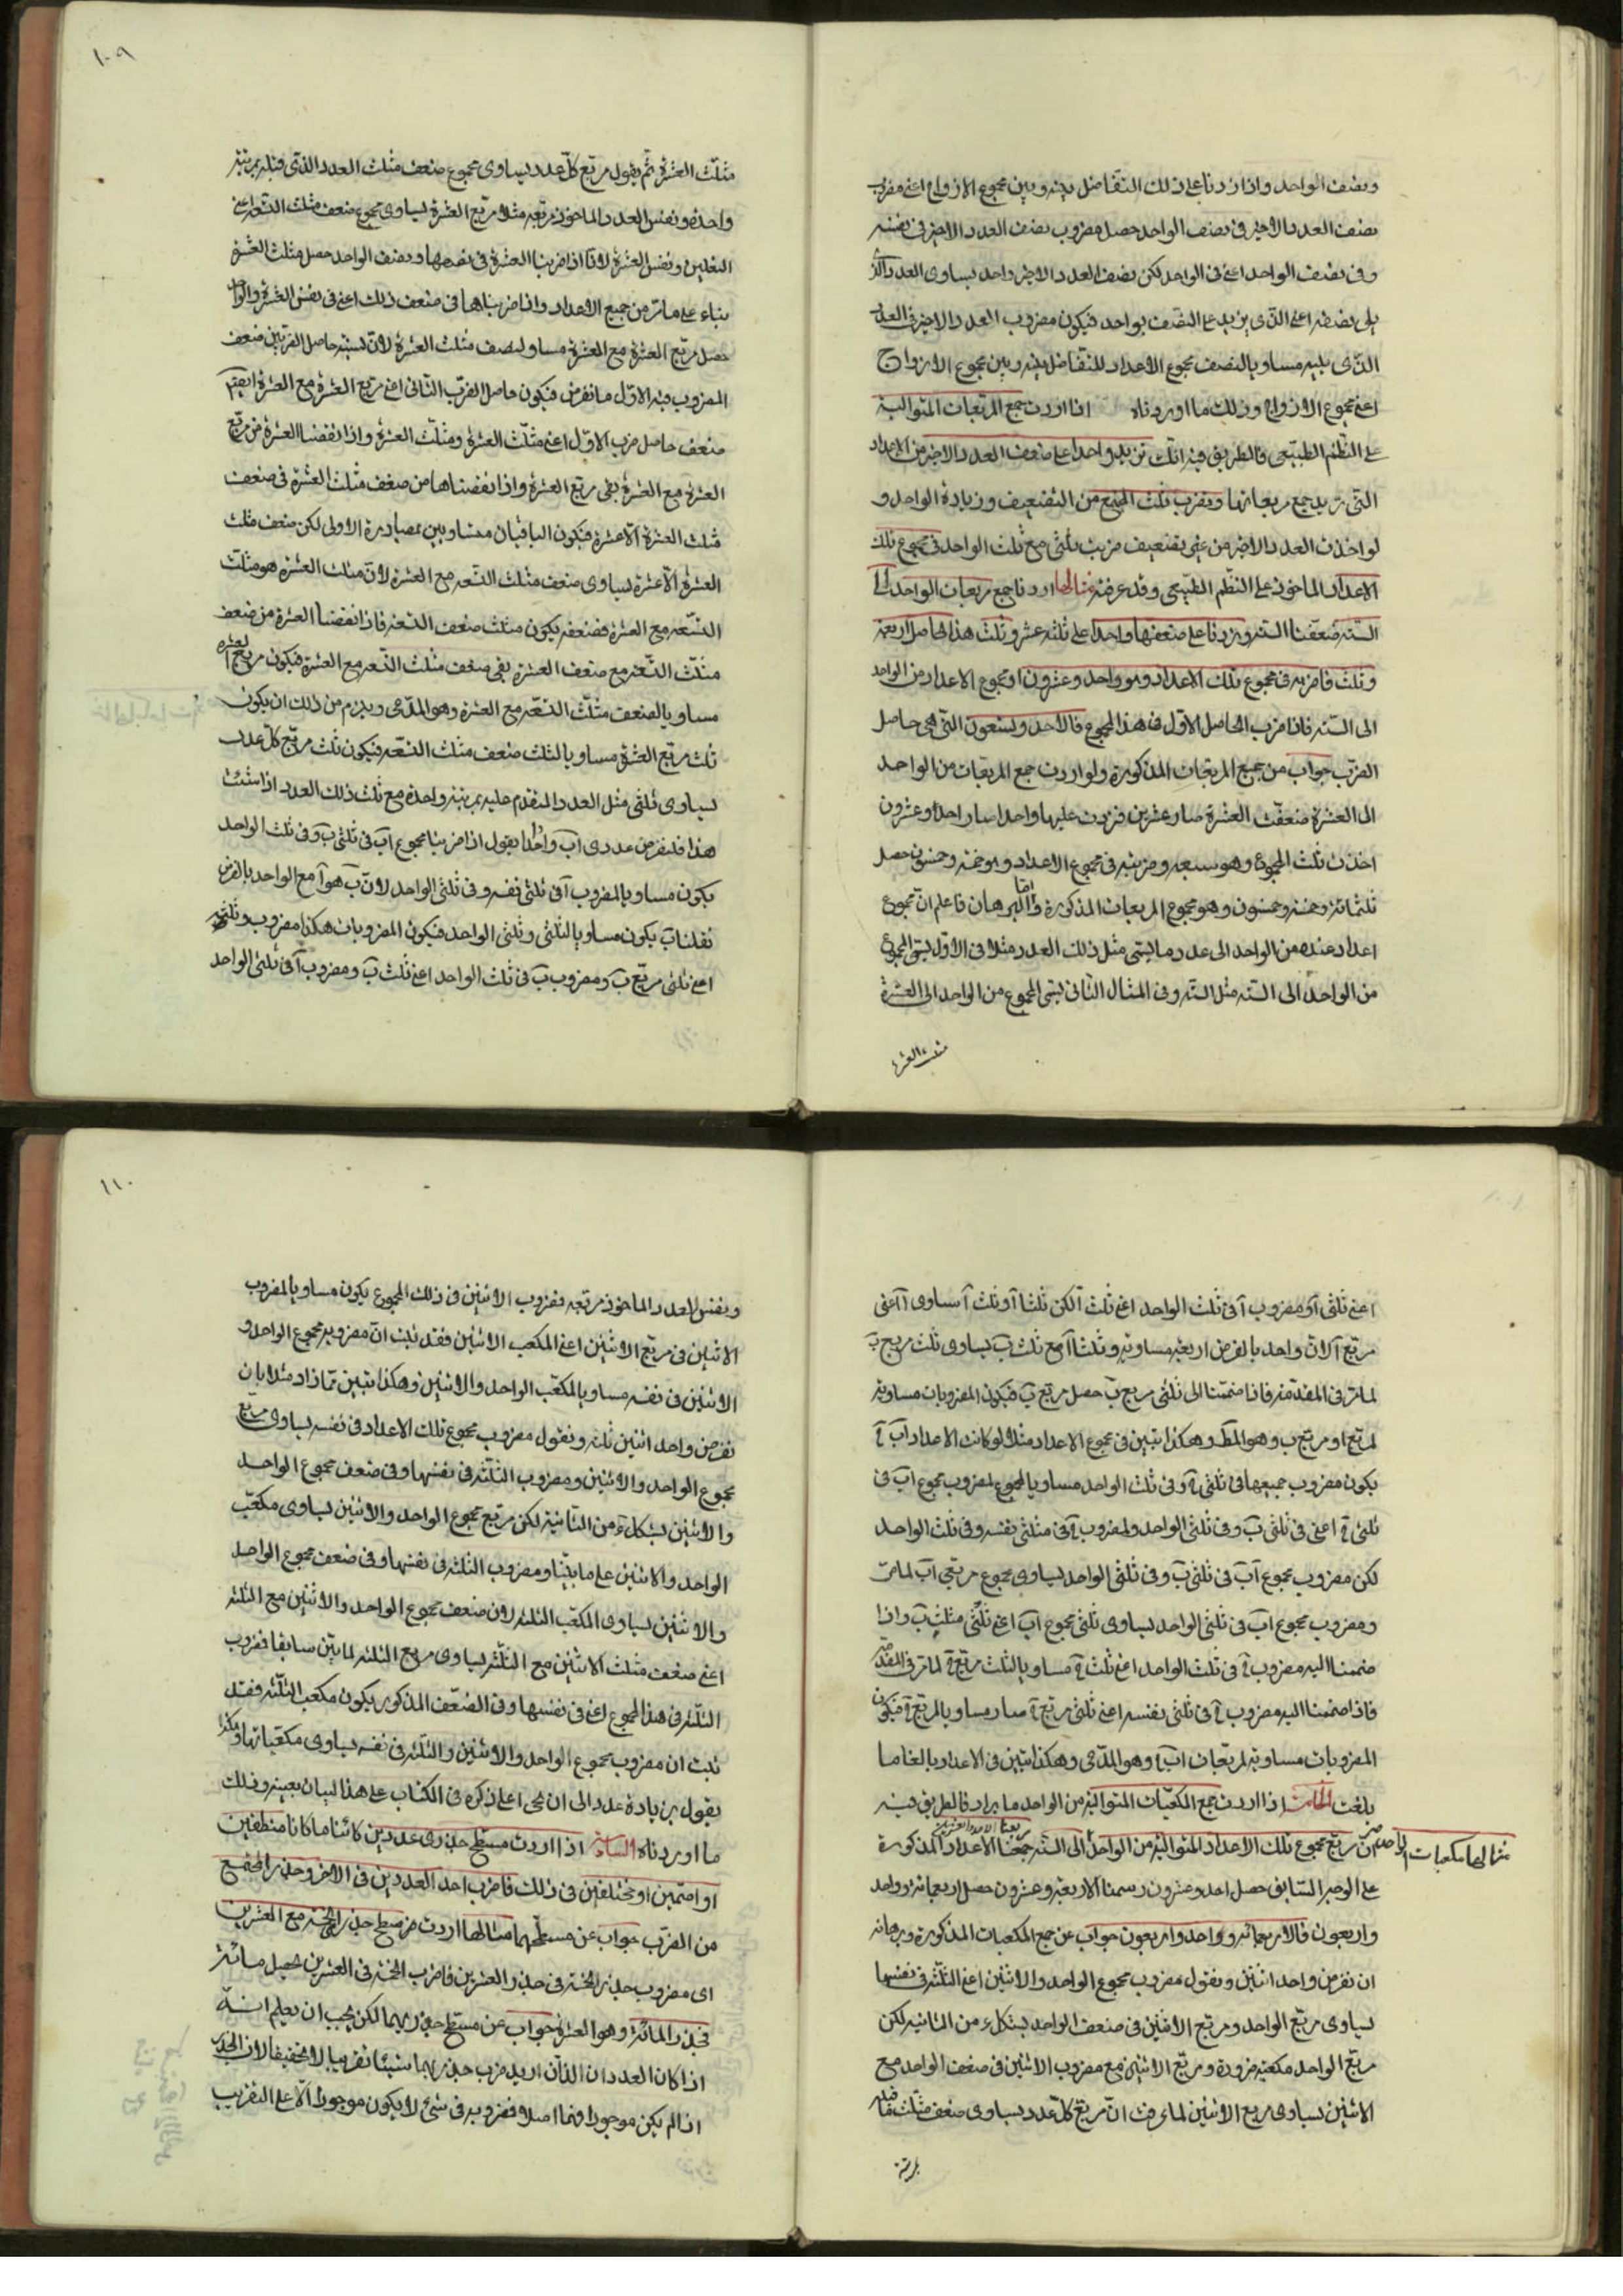 ونصف الواحد واذا زدنا على ذلك التفاضل بينه وبين مجموع الازواج اعنى مضروب
نصف العدد الاخير فى نصف الواحد حصل مضروب نصف العدد الاخير فى نفسه
وفى نصف الواحد اعنى فى الواحد لكن نصف العدد الاخير واحد يساوى العدد الذى
يلى نصفه اعنى الذى يزيد على النصف بواحد فيكون مضروب العدد الاخير فى العدد
الذى يليه مساويا لنصف مجموع الاعداد للتفاضل بينه وبين مجموع الازواج
اعنى مجموع الازواج وذلك ما اوردناه اذا اردت جمع المربعات المتوالية
على النظم الطبيعى فالطريق فيه انك تزيد واحدا على ضعف العدد الاخير من الاعداد
التى تريد جمع مربعاتها وتضرب ثلث المجتمع من التضعيف وزيادة الواحد و
لو اخذت العدد الاخير من غير تضعيف ضربت ثلثى مع ثلث الواحد فى مجموع تلك
الاعداد الماخوذ على النظم الطبيعى وقد عرفته مثالها اردنا جمع مربعات الواحد الى
الستة ضعفنا الستة وزدنا على ضعفها واحدا على ثلثة عشر وثلث هذا الحاصل اربعة
وثلث فاضربه فى مجموع تلك الاعداد وهو واحد وعشرون اى مجموع الاعداد من الواحد
الى الستة فاذا ضرب الحاصل الاول فى هذا المجموع فالاحد وتسعون التى هى حاصل
الضرب جواب من جميع المربعات المذكورة ولو اردت جمع المربعات من الواحد
الى العشرة ضعفت العشرة صار عشرين فزدت عليها واحدا صار احدا وعشرون
اخذت ثلث المجموع وهو سبعه وضربته فى مجموع الاعداد وهو خمسة وخمسون حصل
ثلثمائة وخمسة وخمسون وهو مجموع المربعات المذكورة واما البرهان فاعلم ان مجموع
اعداد عنده من الواحد الى عدد ما يسمى مثلث ذلك العدد مثلا فى الاول يسمى المجموع
من الواحد الى الستة مثلث الستة وفى المثال الثانى يسمى المجموع من الواحد الى العشرة
مثلث العشرة
١٠٩
مثلث العشرة ثم يقول مربع كل عدد يساوى مجموع ضعف مثلث العدد الذى قبله بمرتبة
واحدة ونفس العدد الماخوذ مربعه مثلا مربع العشرة يساوى مجموع ضعف مثلث التسعة اعنى
التسعين ونفس العشرة لانا اذا ضربنا العشرة فى نصفها ونصف الواحد حصل مثلث العشرة
بناء على ما مر من جميع الاعداد واذا ضربناها فى ضعف ذلك اعنى فى نفس العشرة والواحد
حصل مربع العشرة مع العشرة مساو لضعف مثلث العشرة لان نسبة حاصل الضربين ضعف
المضروب فيه الاول ما نفرض فيكون حاصل الضرب الثانى اعنى مربع العشرة مع العشرة ايضا
ضعف حاصل ضرب الاول اعنى مثلث العشرة ومثلث العشرة واذا انقصنا العشرة من مربع
العشرة مع العشرة بقى مربع العشرة واذا انقصناها من ضعف مثلث العشرة فى ضعف
مثلث العشرة الا عشرة فيكون الباقيان متساويين بمصادرة الاولى لكن ضعف مثلث
العشرة الا عشرة يساوى ضعف مثلث التسعة مع العشرة لان مثلث العشرة هو مثلث
التسعة مع العشرة فضعفه يكون مثلث ضعف التسعة فاذا انقصنا العشرة من ضعف
مثلث التسعة مع ضعف العشرة بقى ضعف مثلث التسعة مع العشرة فيكون مربع العشرة
مساويا لضعف مثلث التسعة مع العشرة وهو المدعى ويلزم من ذلك ان يكون
ثلث مربع العشرة مساويا لثلث ضعف مثلث التسعة فيكون ثلث مربع كل عدد
يساوى ثلثى مثل العدد المتقدم عليه بمرتبة واحدة مع ثلث ذلك العدد اذا ثبت
هذا فلنفرض عددى اب واحدا يقول اذا ضربنا مجموع اب فى ثلثى ب وفى ثلث الواحد
يكون مساويا لمضروب آ فى ثلثى نفسه وفى ثلثى الواحد لان ب هو آ مع الواحد بالفرض
فثلثا ب يكون مساويا لثلثى وثلثى الواحد فيكون المضروبات هكذا مضروب ب وثلثيه
اعنى ثلثى مربع ب ومضروب ب فى ثلث الواحد اعنى ثلث ب ومضروب آ فى ثلثى الواحد
اعنى ثلثى آ ومضروب آ فى ثلث الواحد اعنى ثلث آ لكن ثلثا آ وثلث آ يساوى آ اعنى
مربع آ لان واحد بالفرض اربعة مساوية وثلثا آ مع ثلث ب يساوى ثلث مربع ب
لما مر فى المقدمة فاذا ضممنا الى ثلثى مربع ب حصل مربع ب فيكون المضروبات مساوية
لمربع ا ومربع ب وهو المط وهكذا تبين فى مجموع الاعداد مثلا لو كانت الاعداد اب ج
يكون مضروب جميعها فى ثلثى ج وفى ثلث الواحد مساويا لمجموع لمضروب مجموع اب فى
ثلثى ج اعنى فى ثلثى ب وفى ثلثى الواحد ولمضروب ج فى ثلثى نفسه وفى ثلث الواحد
لكن مضروب مجموع اب فى ثلثى ب وفى ثلثى الواحد يساوى مجموع مربعى اب لما مر
ومضروب مجموع اب فى ثلثى الواحد يساوى ثلثى مجموع اب اعنى ثلثى مثلث ب واذا
ضممنا اليه مضروب ج فى ثلث الواحد اعنى ثلث ج مساويا لثلث مربع ج لما مر فى المقدمة
فاذا ضممنا اليه مضروب ج فى ثلثى نفسه اعنى ثلثى مربع ج صار مساويا لمربع ج فيكون
المضروبات مساوية لمربعات اب ج وهو المدعى وهكذا تبين فى الاعداد بالغا ما
بلغت الخامسة اذا اردت جمع المكعبات المتوالية من الواحد ما يراد فالطريق فيه
ان تربع مجموع تلك الاعداد المتوالية من الواحد الى الستة جمعنا الاعداد المذكورة
مثالها مكعبات الواحد
على الوجه السابق حصل احد وعشرون رسمنا الاربعة وعشرون حصل اربعمائة وواحد
واربعون فالاربعمائة وواحد واربعون جواب عن جمع المكعبات المذكورة وبرهانه
ان نفرض واحد اثنين ونقول مضروب مجموع الواحد والاثنين اعنى الثلثة فى نفسها
يساوى مربع الواحد ومربع الاثنين فى ضعف الواحد بشكل ء من الثانية لكن
مربع الواحد مكعبه ضرورة ومربع الاثنين مع مضروب الاثنين فى ضعف الواحد مع
الاثنين يساوى مربع الاثنين لما عرفت ان مربع كل عدد يساوى ضعف مثلث ما قبله
بمرتبة
١١٠
ونفس العدد الماخوذ مربعه فضروب الاثنين فى ذلك المجموع يكون مساويا لمضروب
الاثنين فى مربع الاثنين اعنى المكعب الاثنين فقد ثبت ان مضروب مجموع الواحد و
الاثنين فى نفسه مساويا لمكعب الواحد والاثنين وهكذا تبين تمازاد مثلا بان
نفرض واحد اثنين ثلثة ونقول مضروب مجموع تلك الاعداد فى نفسه يساوى مربع
مجموع الواحد والاثنين ومضروب الثلثة فى نفسها وفى ضعف مجموع الواحد
والاثنين بشكل ء من الثانية لكن مربع مجموع الواحد والاثنين يساوى مكعب
الواحد والاثنين على ما بينا ومضروب الثلثة فى نفسها وفى ضعف مجموع الواحد
والاثنين يساوى المكعب الثلثة لان ضعف مجموع الواحد والاثنين مع الثلثة
اعنى ضعف مثلث الاثنين مع الثلثة يساوى مربع الثلثة لما بين سابقا فضروب
الثلثة فى هذا المجموع اعنى فى نفسها وفى الضعف المذكور يكون مكعب الثلثة فقد
ثبت ان مضروب مجموع الواحد والاثنين والثلثة فى نفسه يساوى مكعباتها وهكذا
يقول بزيادة عدد الى ان يجى اعلى ذكره فى الكتاب على هذا البيان بعينه وذلك
ما اوردناه السادسة اذا اردت مسطح جذرى عددين كائنا ما كانا منطقين
او اصمين او مختلفين فى ذلك فاضرب احد العددين فى الاخر وجذر المجتمع
من الضرب جواب عن مسطحهما مثالها اردت مسطح جذر الخمسة مع العشرين
اى مضروب جذر الخمسة فى جذر العشرين فاضرب الخمسة فى العشرين يحصل مائة
فجذر المائة وهو العشرة جواب عن مسطح جذريهما لكن يجب ان يعلم انه
اذا كان العددان اللذان اريد ضرب جذريهما شيئا تقريبا لا تحقيقا لان الجذر
اذا لم يكن موجودا فيهما اصلا فضروبه فى شئ لا يكون موجودا الا على التقريب